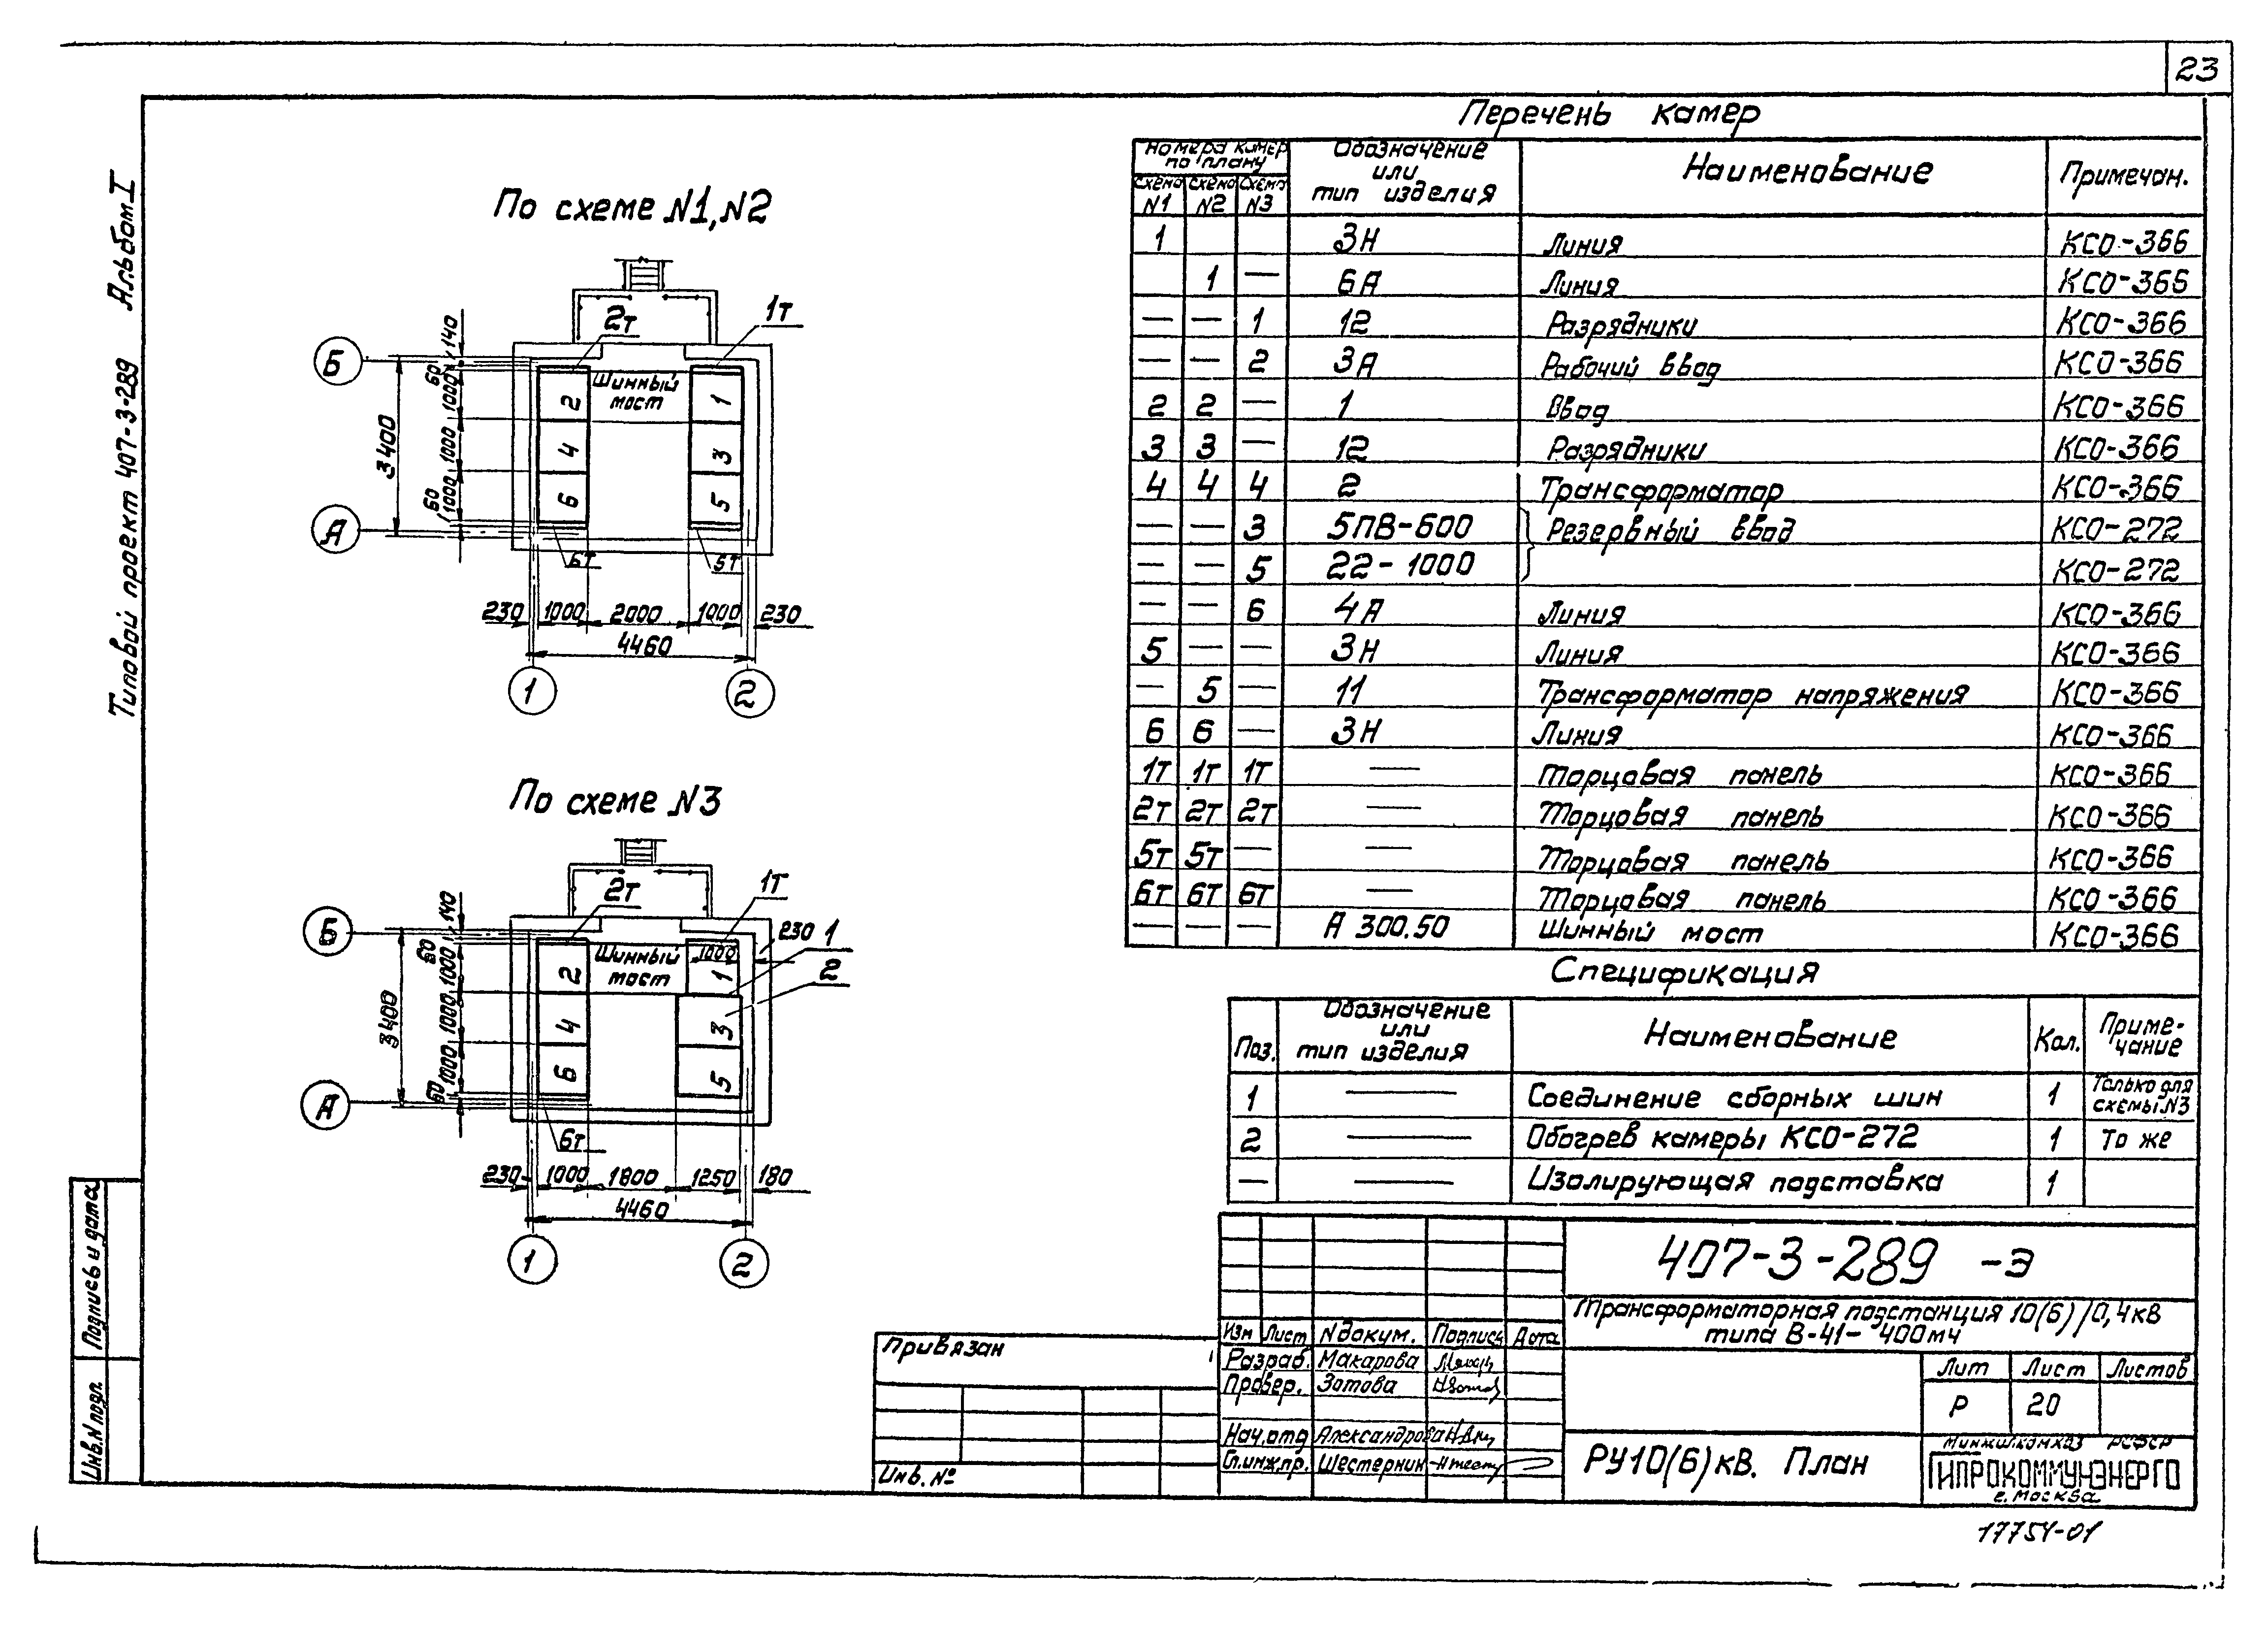 23
Типовой проект 407-3-289 Альбом I
По схеме N1, N2
2т
1т
Б
А
140
60
1000
1000
1000
60
3400
Шинный
мост
2
4
6
1
3
5
6т
5т
230 1000 2000 1000 230
4460
1
2
По схеме N3
2т
1т
Б
А
140
60
1000
1000
1000
60
3400
Шинный
мост
1000
230
1
2
2
4
6
1
3
5
6т
230 1000 1800 1250 180
4460
1
2
Перечень камер
Номера камер по плану | Обозначение или тип изделия | Наименование | Примечан.
схема N1 | схема N2 | схема N3
1 3Н Линия КСО-366
1 — 6А Линия КСО-366
— — 1 12 Разрядники КСО-366
— — 2 3А Рабочий ввод КСО-366
2 2 — 1 Ввод КСО-366
3 3 — 12 Разрядники КСО-366
4 4 4 2 Трансформатор КСО-366
— — 3 5ПВ-600 Резервный ввод КСО-272
— — 5 22-1000 КСО-272
— — 6 4А Линия КСО-366
5 — — 3Н Линия КСО-366
— 5 — 11 Трансформатор напряжения КСО-366
6 6 — 3Н Линия КСО-366
1т 1т 1т — Торцовая панель КСО-366
2т 2т 2т — Торцовая панель КСО-366
5т 5т — — Торцовая панель КСО-366
6т 6т 6т — Торцовая панель КСО-366
— — — А 300.50 Шинный мост КСО-366
Спецификация
Поз. | Обозначение или тип изделия | Наименование | Кол. | Примечание
1 — Соединение сборных шин 1 Только для схемы N3
2 — Обогрев камеры КСО-272 1 То же
— — Изолирующая подставка 1
407-3-289 -Э
Трансформаторная подстанция 10(6)/0,4кВ
типа В-41-400мч
Изм Лист N докум. Подпись Дата
Разраб. Макарова
Провер. Зотова
Нач.отд Александрова
Гл.инж.пр. Шестернин
Лит Лист Листов
Р 20
РУ10(6)кВ. План
Минжилкомхоз РСФСР
ГИПРОКОММУНЭНЕРГО
г. Москва
Привязан
Инв. №
Подпись и дата
Инв.N подл.
17754-01